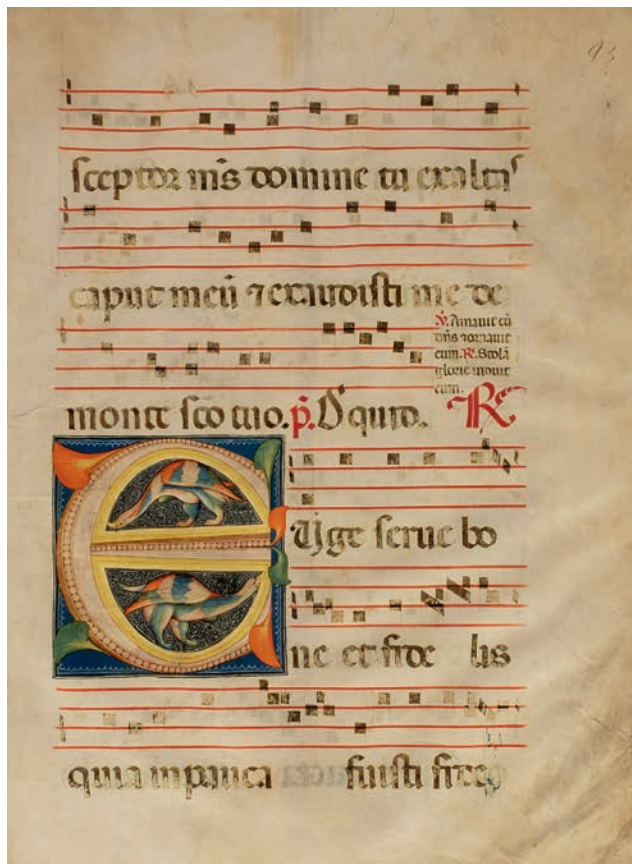 93
sceptor m̄s domine tu exalta
caput meū ⁊ exaudisti me de
℣. Amauit eū
dn̄s ⁊ ornauit
eum. ℟. Stolā
glorie induit
eum.
monte sc̄o tuo. p̄. D quid. ℟
Euge serue bo
ne et fide lis
quia in pauca fuisti fide